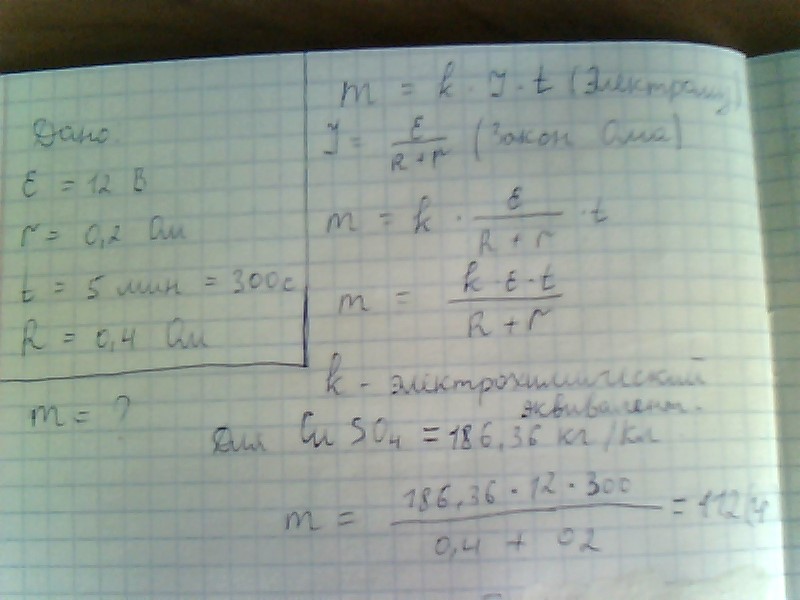 Дано.
ε = 12 В
r = 0,2 Ом
t = 5 мин = 300с
R = 0,4 Ом
m = ?
m = k · I · t (Электролиз)
I = ε / R + r (Закон Ома)
m = k · ε / R + r · t
m = k · ε · t / R + r
k - электрохимический
эквивалент.
Для CuSO₄ = 186,36 кг/Кл
m = 186,36 · 12 · 300 / 0,4 + 02 =